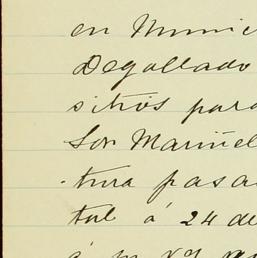 en Munic
Degollado
sitios para
Los Mariñel
tura pasa
tal á 24 de
á